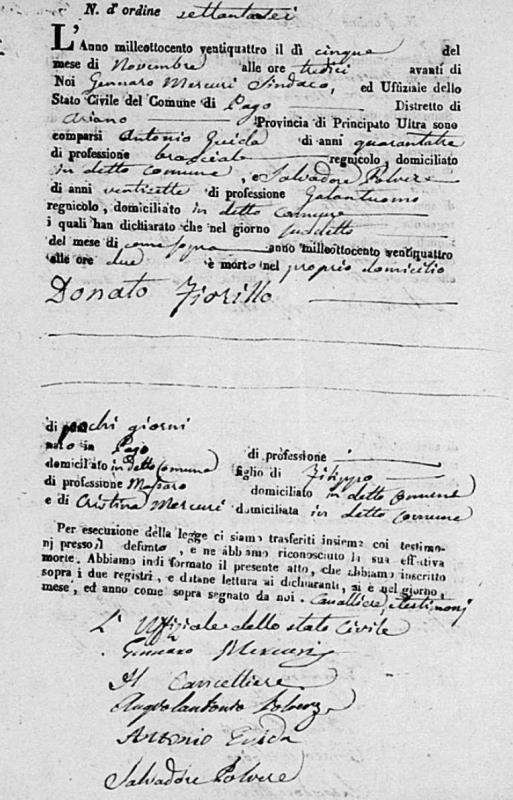 N. d'ordine settantasei
L'Anno milleottocento ventiquattro il dì cinque del
mese di Novembre alle ore tredici avanti di
Noi Gennaro Mercuri Sindaco, ed Uffiziale dello
Stato Civile del Comune di Pago Distretto di
Ariano Provincia di Principato Ultra sono
comparsi Antonio Guida di anni quarantatre
di professione bracciale regnicolo, domiciliato
in detto comune, e Salvadore Polvere
di anni venticette di professione Galantuomo
regnicolo, domiciliato in detto comune
i quali han dichiarato che nel giorno suddetto
del mese di come sopra anno milleottocento ventiquattro
alle ore due è morto nel proprio domicilio
Donato Fiorillo
di pochi giorni
nato in Pago di professione
domiciliato in detto Comune figlio di Filippo
di professione Massaro domiciliato in detto Comune
e di Cristina Mercuri domiciliata in detto Comune
Per esecuzione della legge ci siamo trasferiti insieme coi testimo-
nj presso il defunto, e ne abbiamo riconosciuto la sua effettiva
morte. Abbiamo indi formato il presente atto, che abbiamo inscritto
sopra i due registri, e datane lettura ai dichiaranti, si è nel giorno,
mese, ed anno come sopra segnato da noi. Cancelliere, e testimonj
L'Uffiziale dello stato Civile
Gennaro Mercuri
Il Cancelliere
Angelantonio Polvere
Antonio Guida
Salvadore Polvere